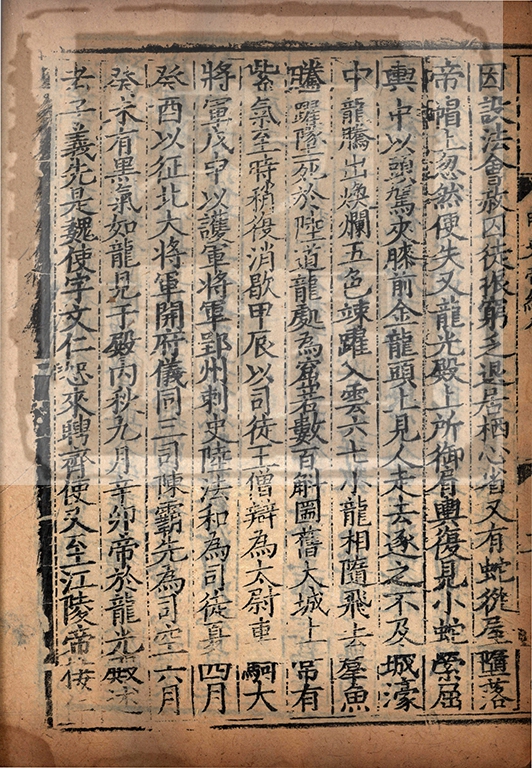 因設法會赦囚徒振窮乏退居栖心省又有蛇從屋墮落
帝帽上忽然便失又龍光殿上所御肩輿復見小蛇縈屈
輿中以頭駕夾膝前金龍頭上見人走去逐之不及城濠
中龍騰出煥爛五色竦躍入雲六七小龍相隨飛去羣魚
騰躍墜死於陸道龍處為窟若數百斛圌舊大城上常有
紫氣至時稍復消歇甲辰以司徒王僧辯為太尉車騎大
將軍戊申以護軍將軍郢州刺史陸法和為司徒夏四月
癸酉以征北大將軍開府儀同三司陳霸先為司空六月
癸未有黑氣如龍見于殿內秋九月辛卯帝於龍光殿述
老子義先是魏使宇文仁恕來聘齊使又至江陵帝接仁